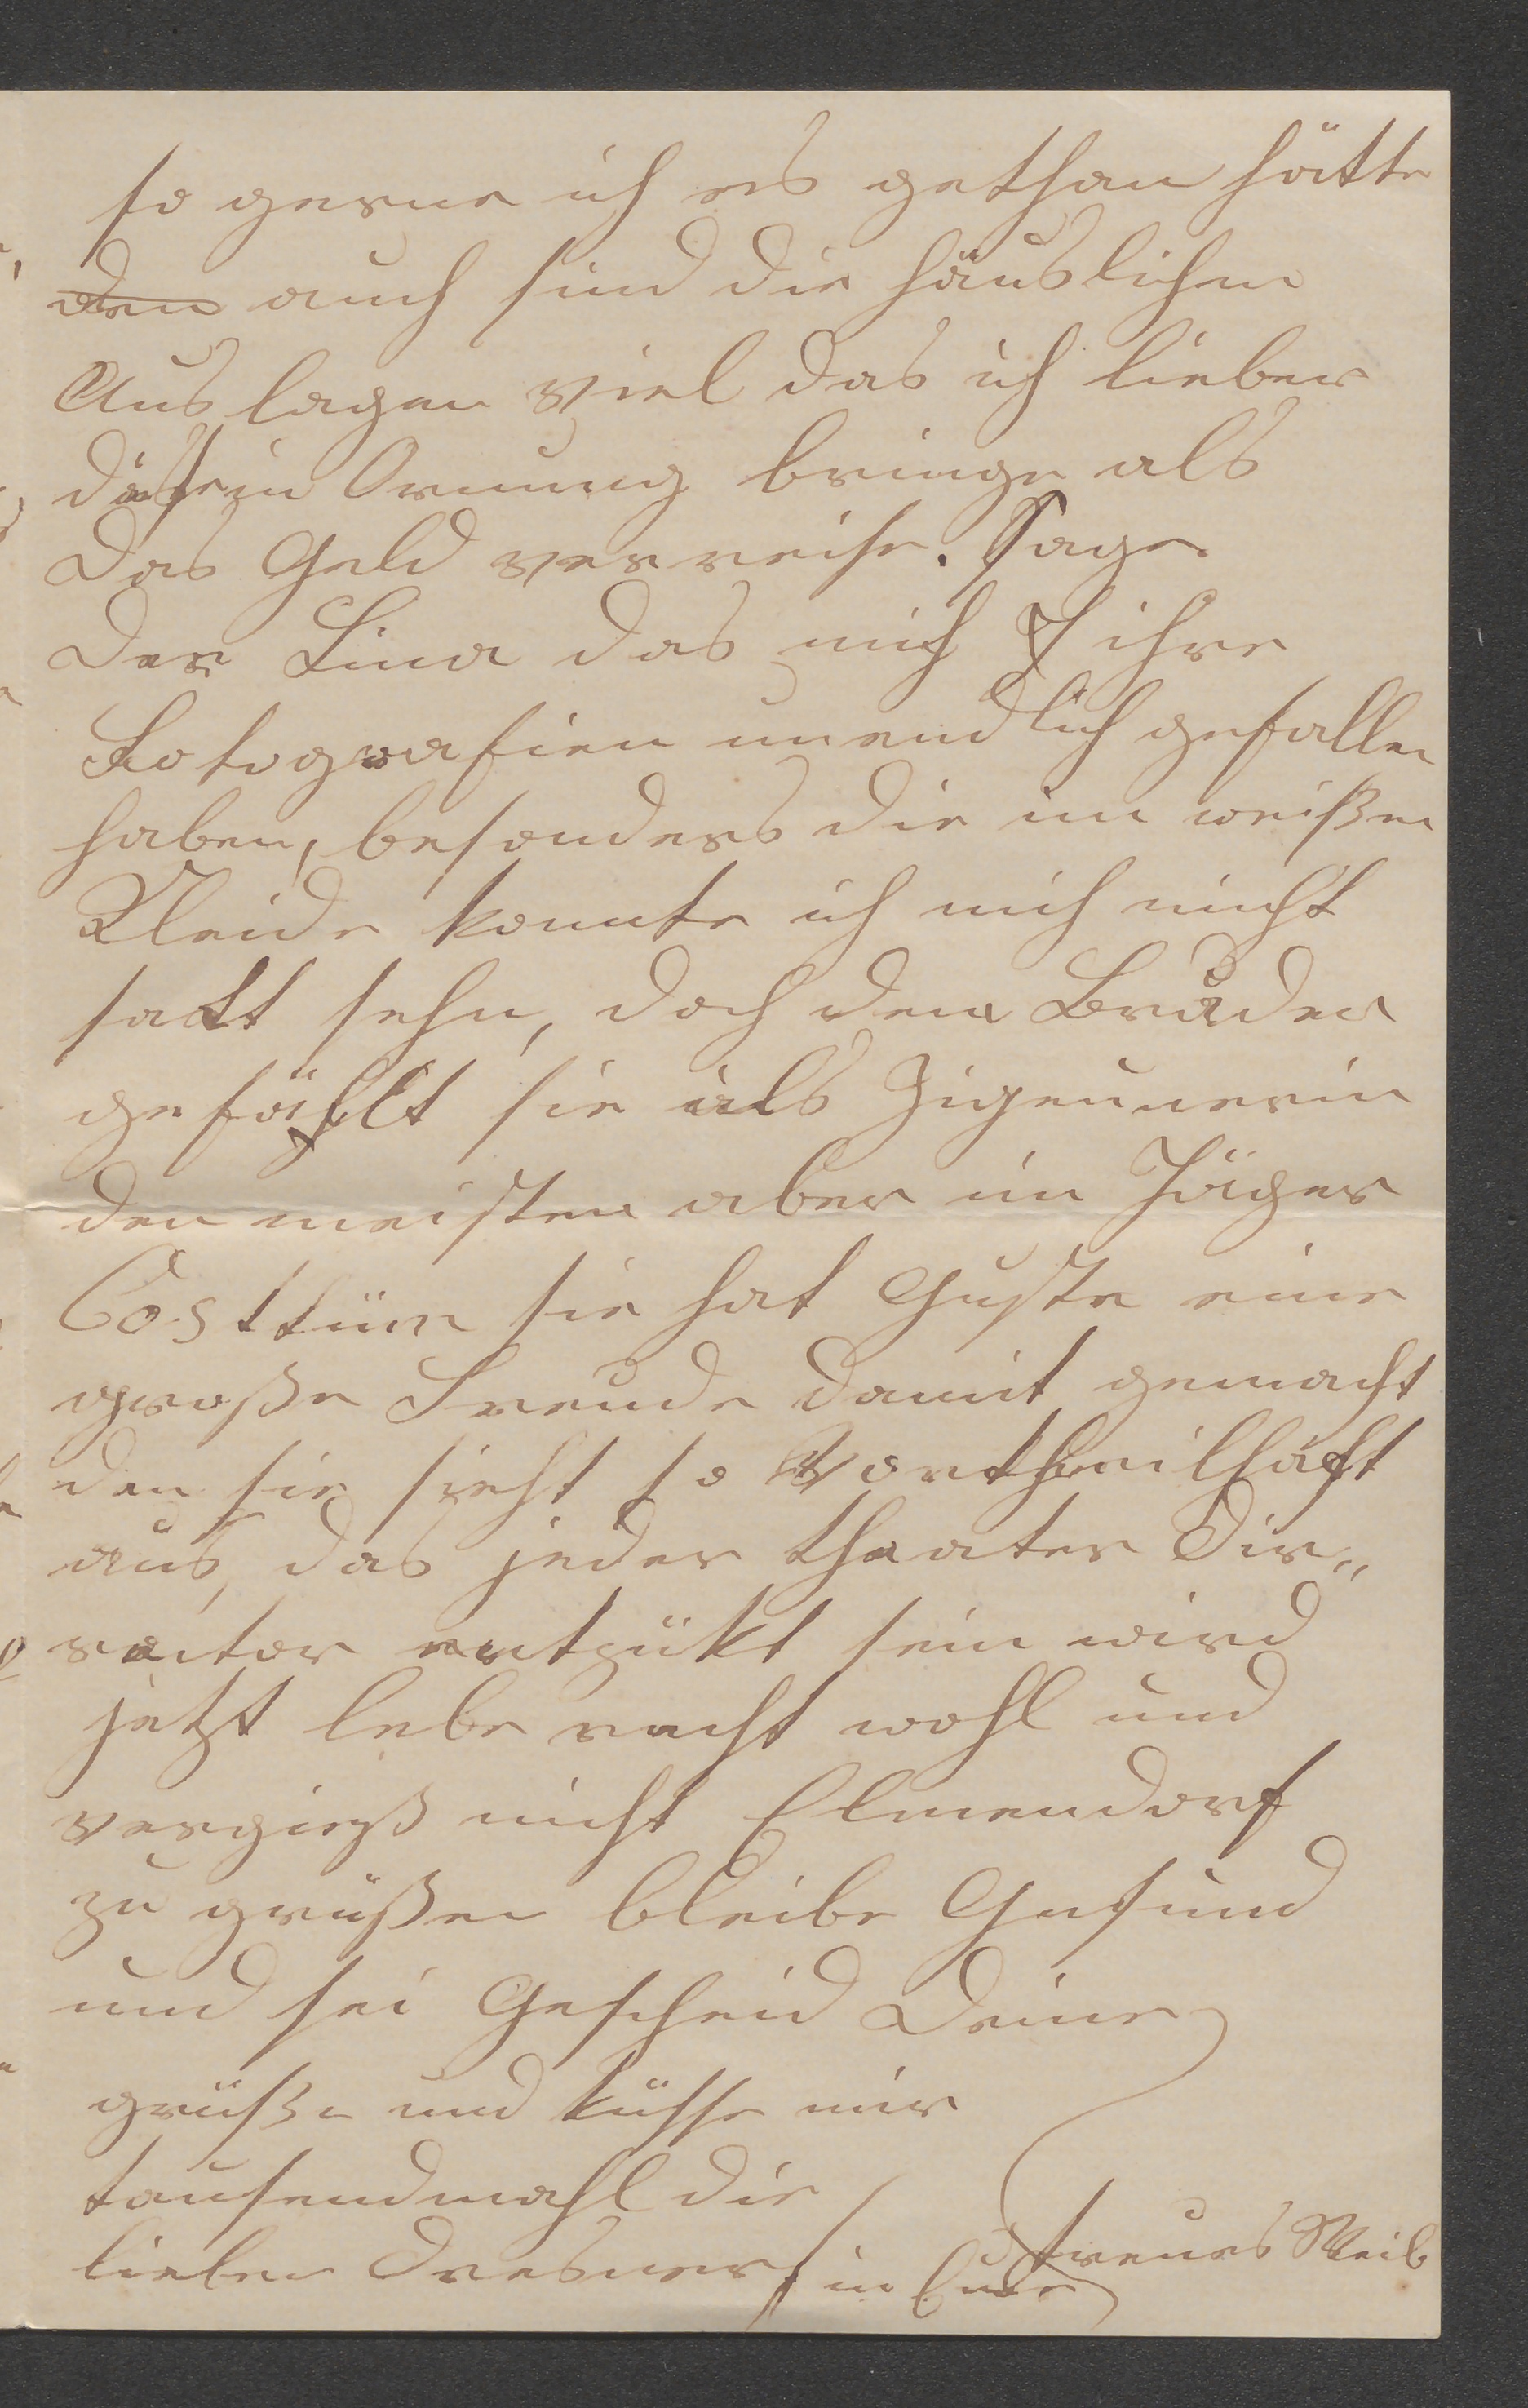 so gerne ich es gethan hätte
den auch sind die häuslichen
Auslagen viel das ich lieber
das in Ornung bringe als
das Geld verreise. Sage
der Lina das mich ihre
Fotografien unendlich gefallen
haben, besonders die im weißen
Kleide konnte ich mich nicht
satt sehn, doch den Bruder
gefählt sie als Zigeunerin
den meisten aber im Jäger
Costtüm sie hat Guste eine
große Freude damit gemacht
den sie sieht so Vortheilhaft
aus, das jeder theater Dir„
ector entzükt sein wird
jetzt lebe recht wohl und
vergieß nicht Elmendorf
zu grüßen bleibe Gesund
und sei Gescheid Deine
grüße und küsse mir
tausendmahl die
lieben Dresner in treues Weib